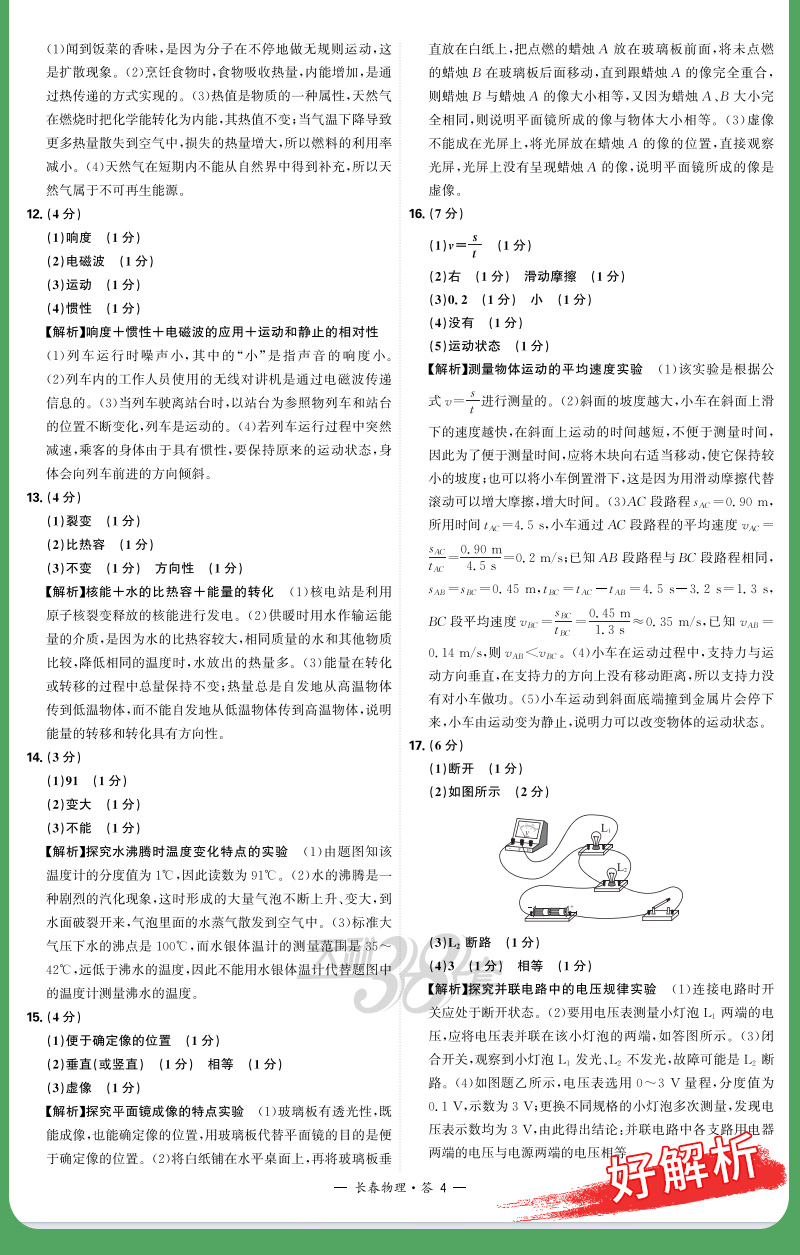 (1)闻到饭菜的香味,是因为分子在不停地做无规则运动,这
是扩散现象。(2)烹饪食物时,食物吸收热量,内能增加,是通
过热传递的方式实现的。(3)热值是物质的一种属性,天然气
在燃烧时把化学能转化为内能,其热值不变;当气温下降导致
更多热量散失到空气中,损失的热量增大,所以燃料的利用率
减小。(4)天然气在短期内不能从自然界中得到补充,所以天
然气属于不可再生能源。
12. (4分)
(1)响度 (1分)
(2)电磁波 (1分)
(3)运动 (1分)
(4)惯性 (1分)
【解析】响度+惯性+电磁波的应用+运动和静止的相对性
(1)列车运行时噪声小,其中的“小”是指声音的响度小。
(2)列车内的工作人员使用的无线对讲机是通过电磁波传递
信息的。(3)当列车驶离站台时,以站台为参照物列车和站台
的位置不断变化,列车是运动的。(4)若列车运行过程中突然
减速,乘客的身体由于具有惯性,要保持原来的运动状态,身
体会向列车前进的方向倾斜。
13. (4分)
(1)裂变 (1分)
(2)比热容 (1分)
(3)不变 (1分) 方向性 (1分)
【解析】核能+水的比热容+能量的转化 (1)核电站是利用
原子核裂变释放的核能进行发电。(2)供暖时用水作输运能
量的介质,是因为水的比热容较大,相同质量的水和其他物质
比较,降低相同的温度时,水放出的热量多。(3)能量在转化
或转移的过程中总量保持不变;热量总是自发地从高温物体
传到低温物体,而不能自发地从低温物体传到高温物体,说明
能量的转移和转化具有方向性。
14. (3分)
(1)91 (1分)
(2)变大 (1分)
(3)不能 (1分)
【解析】探究水沸腾时温度变化特点的实验 (1)由题图知该
温度计的分度值为1℃,因此读数为91℃。(2)水的沸腾是一
种剧烈的汽化现象,这时形成的大量气泡不断上升、变大,到
水面破裂开来,气泡里面的水蒸气散发到空气中。(3)标准大
气压下水的沸点是100℃,而水银体温计的测量范围是35~
42℃,远低于沸水的温度,因此不能用水银体温计代替题图中
的温度计测量沸水的温度。
15. (4分)
(1)便于确定像的位置 (1分)
(2)垂直(或竖直) (1分) 相等 (1分)
(3)虚像 (1分)
【解析】探究平面镜成像的特点实验 (1)玻璃板有透光性,既
能成像,也能确定像的位置,用玻璃板代替平面镜的目的是便
于确定像的位置。(2)将白纸铺在水平桌面上,再将玻璃板垂
直放在白纸上,把点燃的蜡烛A放在玻璃板前面,将未点燃
的蜡烛B在玻璃板后面移动,直到跟蜡烛A的像完全重合,
则蜡烛B与蜡烛A的像大小相等,又因为蜡烛A、B大小完
全相同,则说明平面镜所成的像与物体大小相等。(3)虚像
不能成在光屏上,将光屏放在蜡烛A的像的位置,直接观察
光屏,光屏上没有呈现蜡烛A的像,说明平面镜所成的像是
虚像。
16. (7分)
(1)v=s/t (1分)
(2)右 (1分) 滑动摩擦 (1分)
(3)0.2 (1分) 小 (1分)
(4)没有 (1分)
(5)运动状态 (1分)
【解析】测量物体运动的平均速度实验 (1)该实验是根据公
式v=s/t进行测量的。(2)斜面的坡度越大,小车在斜面上滑
下的速度越快,在斜面上运动的时间越短,不便于测量时间,
因此为了便于测量时间,应将木块向右适当移动,使它保持较
小的坡度;也可以将小车倒置滑下,这是因为用滑动摩擦代替
滚动可以增大摩擦,增大时间。(3)AC段路程s_AC=0.90 m,
所用时间t_AC=4.5 s,小车通过AC段路程的平均速度v_AC=
s_AC/t_AC=0.90 m/4.5 s=0.2 m/s;已知AB段路程与BC段路程相同,
s_AB=s_BC=0.45 m,t_BC=t_AC-t_AB=4.5 s-3.2 s=1.3 s,
BC段平均速度v_BC=s_BC/t_BC=0.45 m/1.3 s≈0.35 m/s,已知v_AB=
0.14 m/s,则v_AB<v_BC。(4)小车在运动过程中,支持力与运
动方向垂直,在支持力的方向上没有移动距离,所以支持力没
有对小车做功。(5)小车运动到斜面底端撞到金属片会停下
来,小车由运动变为静止,说明力可以改变物体的运动状态。
17. (6分)
(1)断开 (1分)
(2)如图所示 (2分)
V
L₁
L₂
- +
(3)L₂断路 (1分)
(4)3 (1分) 相等 (1分)
【解析】探究并联电路中的电压规律实验 (1)连接电路时开
关应处于断开状态。(2)要用电压表测量小灯泡L₁两端的电
压,应将电压表并联在该小灯泡的两端,如答图所示。(3)闭
合开关,观察到小灯泡L₁发光、L₂不发光,故障可能是L₂断
路。(4)如图题乙所示,电压表选用0~3 V量程,分度值为
0.1 V,示数为3 V;更换不同规格的小灯泡多次测量,发现电
压表示数均为3 V,由此得出结论:并联电路中各支路用电器
两端的电压与电源两端的电压相等。
天利38套
好解析
— 长春物理·答 4 —